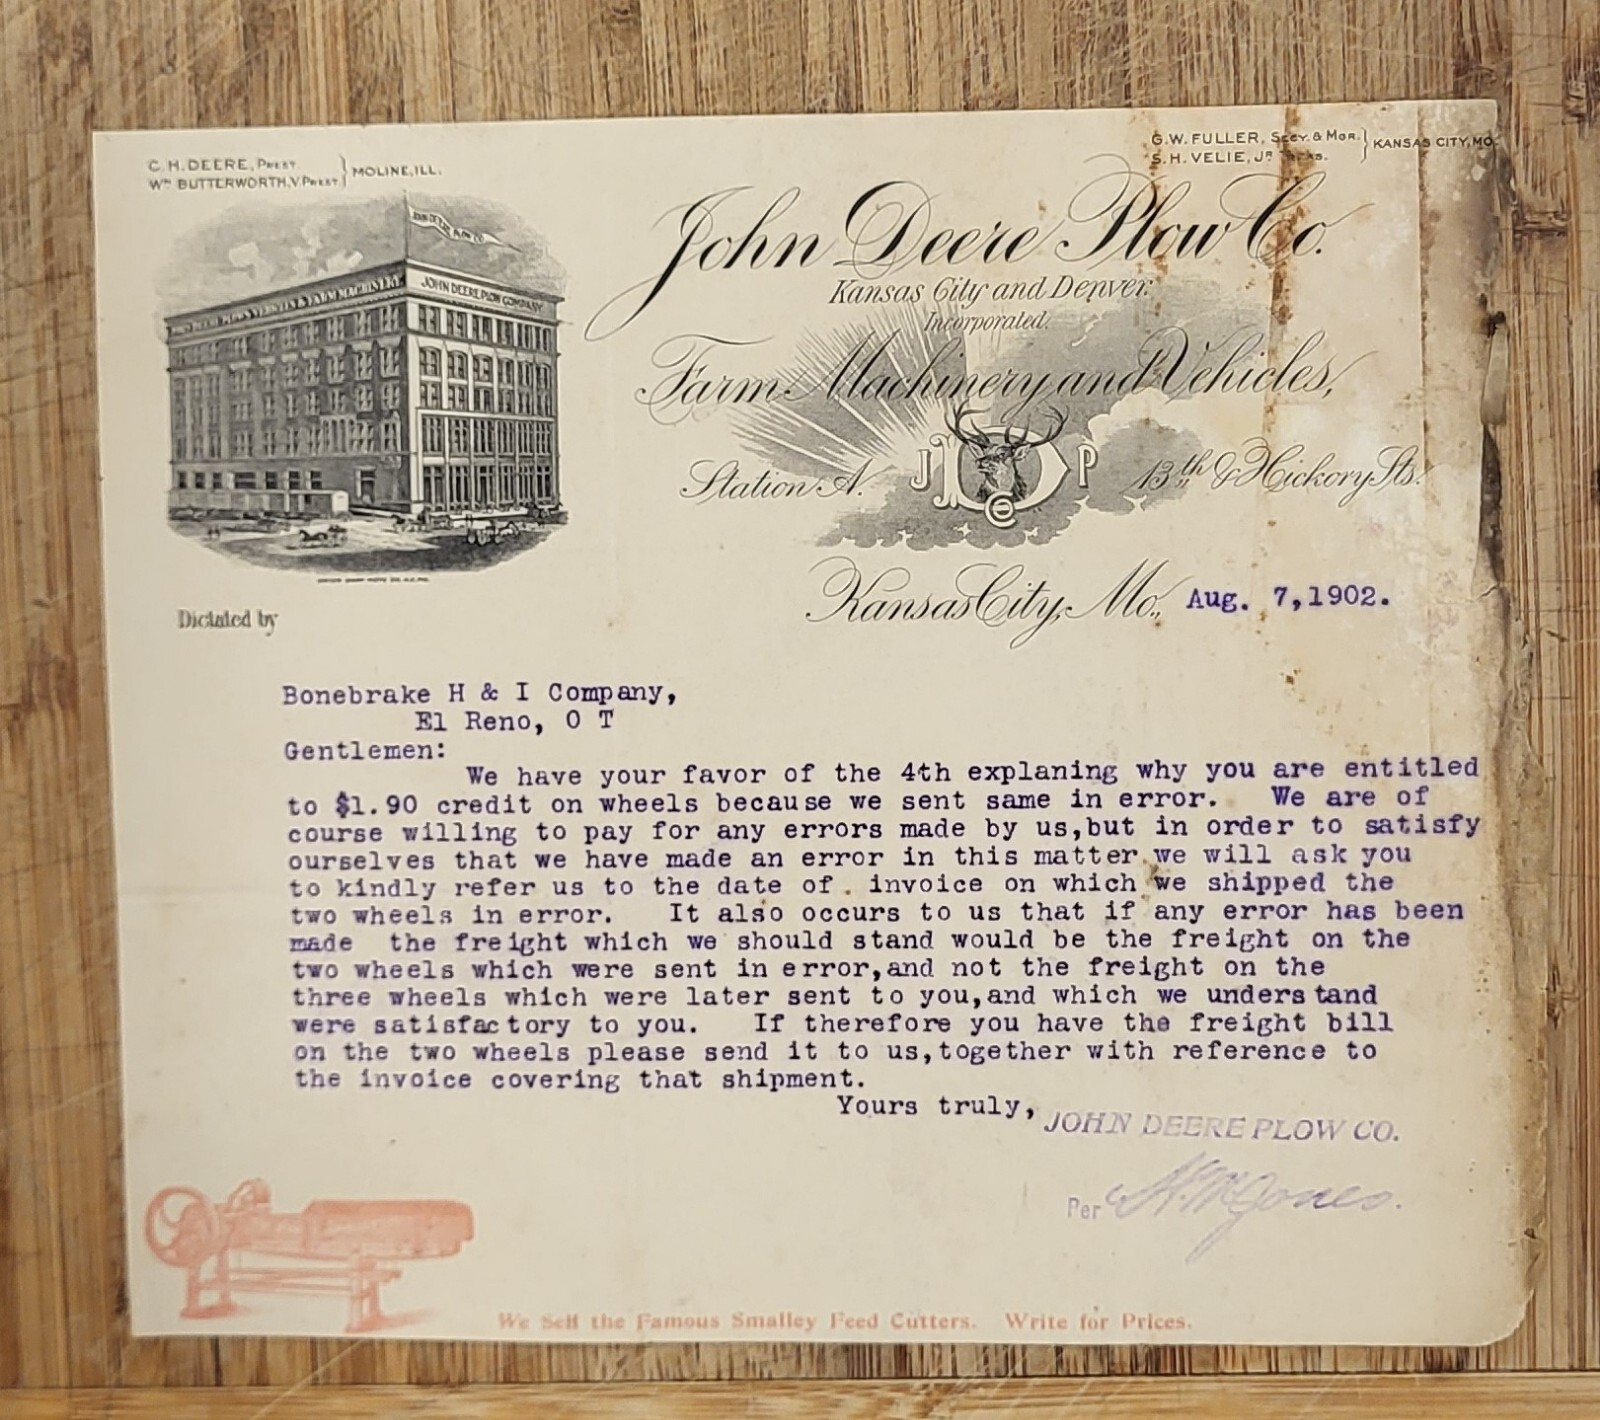 C. H. DEERE, PREST.
WM BUTTERWORTH, V. PREST.
MOLINE, ILL.
G. W. FULLER, SECY. & MGR.
S. H. VELIE, JR
KANSAS CITY, MO.
JOHN DEERE PLOW COMPANY
John Deere Plow Co.
Kansas City and Denver.
Incorporated.
Farm Machinery and Vehicles,
Station A. J D P Co 13th & Hickory Sts.
Kansas City, Mo., Aug. 7,1902.
Dictated by
Bonebrake H & I Company,
El Reno, O T
Gentlemen:
We have your favor of the 4th explaning why you are entitled
to $1.90 credit on wheels because we sent same in error. We are of
course willing to pay for any errors made by us,but in order to satisfy
ourselves that we have made an error in this matter we will ask you
to kindly refer us to the date of . invoice on which we shipped the
two wheels in error. It also occurs to us that if any error has been
made the freight which we should stand would be the freight on the
two wheels which were sent in error,and not the freight on the
three wheels which were later sent to you,and which we understand
were satisfactory to you. If therefore you have the freight bill
on the two wheels please send it to us,together with reference to
the invoice covering that shipment.
Yours truly,
JOHN DEERE PLOW CO.
Per Jones.
We Sell the Famous Smalley Feed Cutters. Write for Prices.